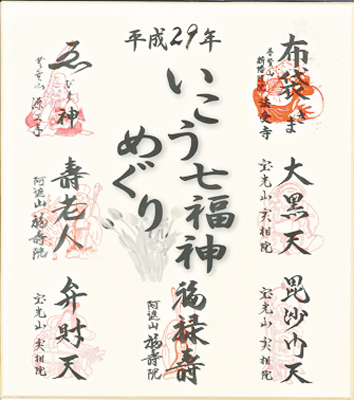 平成29年
布袋さま
寺
大黒天
宝光山 実相院
毘沙門天
宝光山 実相院
いこう七福神
めぐり
福禄寿
阿遮山 福壽院
ゑびす神
源正寺
壽老人
阿遮山 福壽院
弁財天
宝光山 実相院